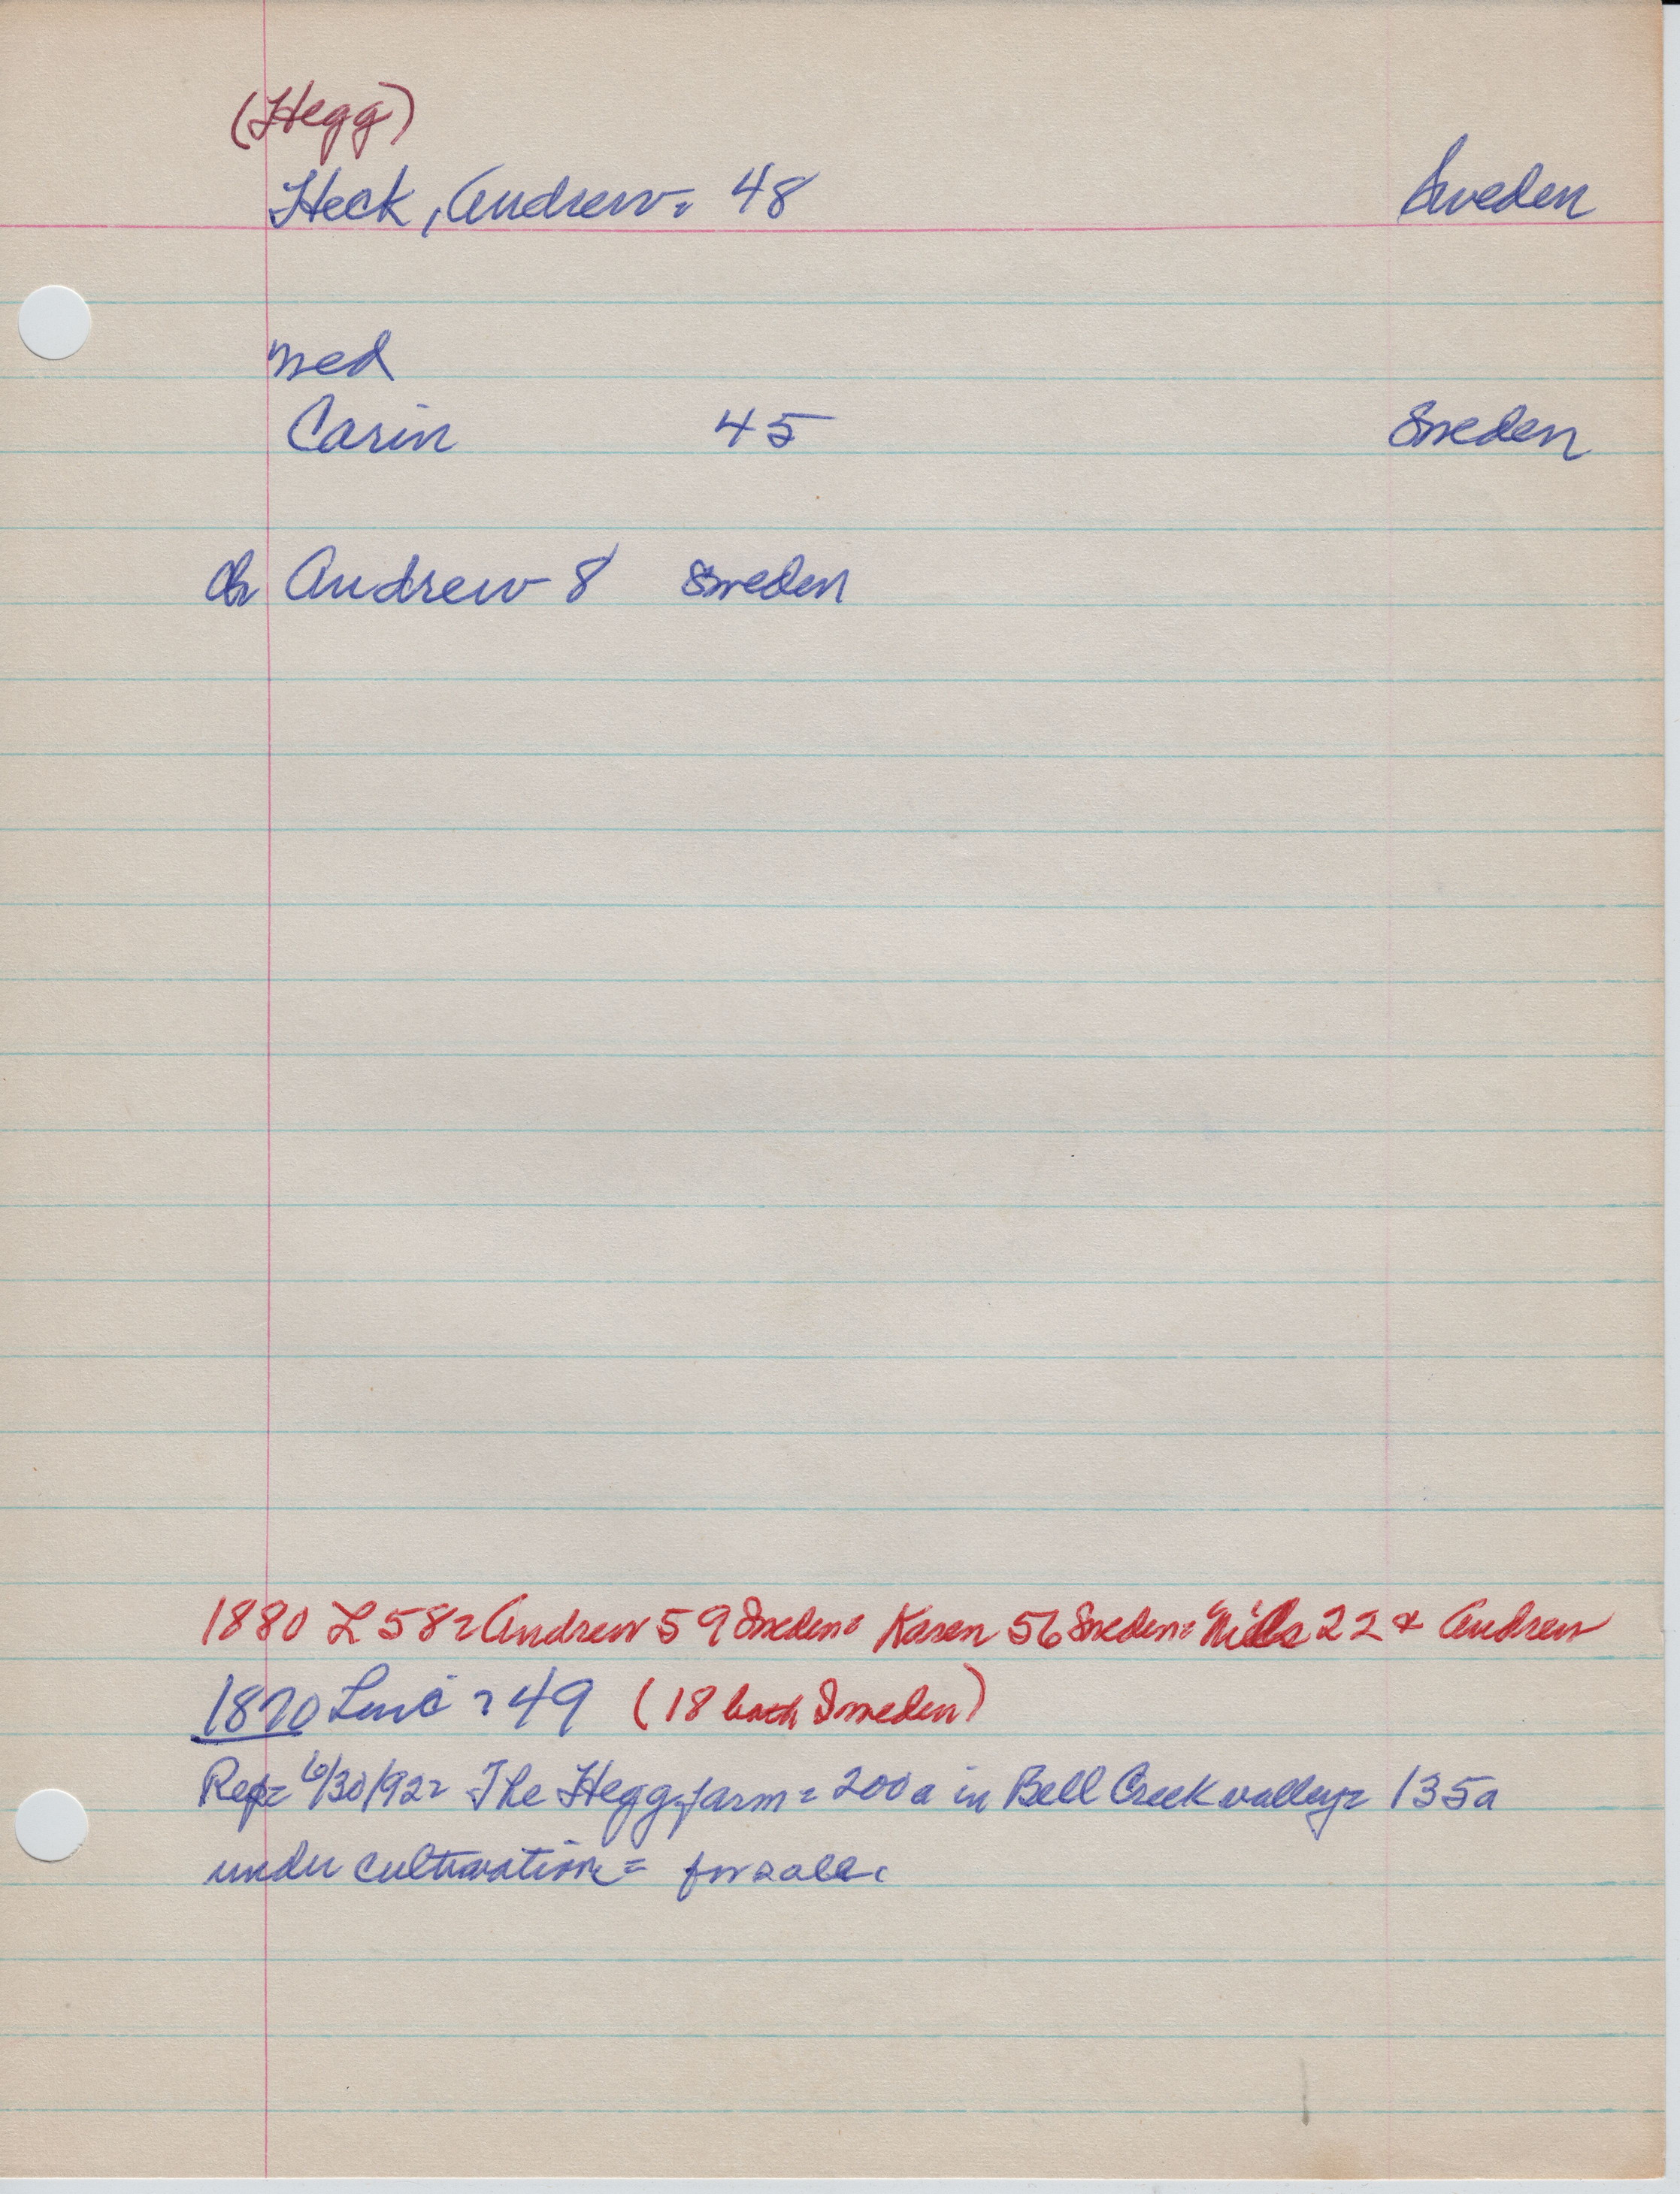 (Hegg)
Heck, Andrew = 48 Sweden
med
Carin 45 Sweden
ch Andrew 8 Sweden
1880 L 58 = Andrew 59 Sweden = Karen 56 Sweden = Nills 22 & Andrew
1870 Line = 49 (18 both Sweden)
Rep = 6/30/92 = The Hegg farm = 200a in Bell Creek valley = 135a
under cultivation = for sale.